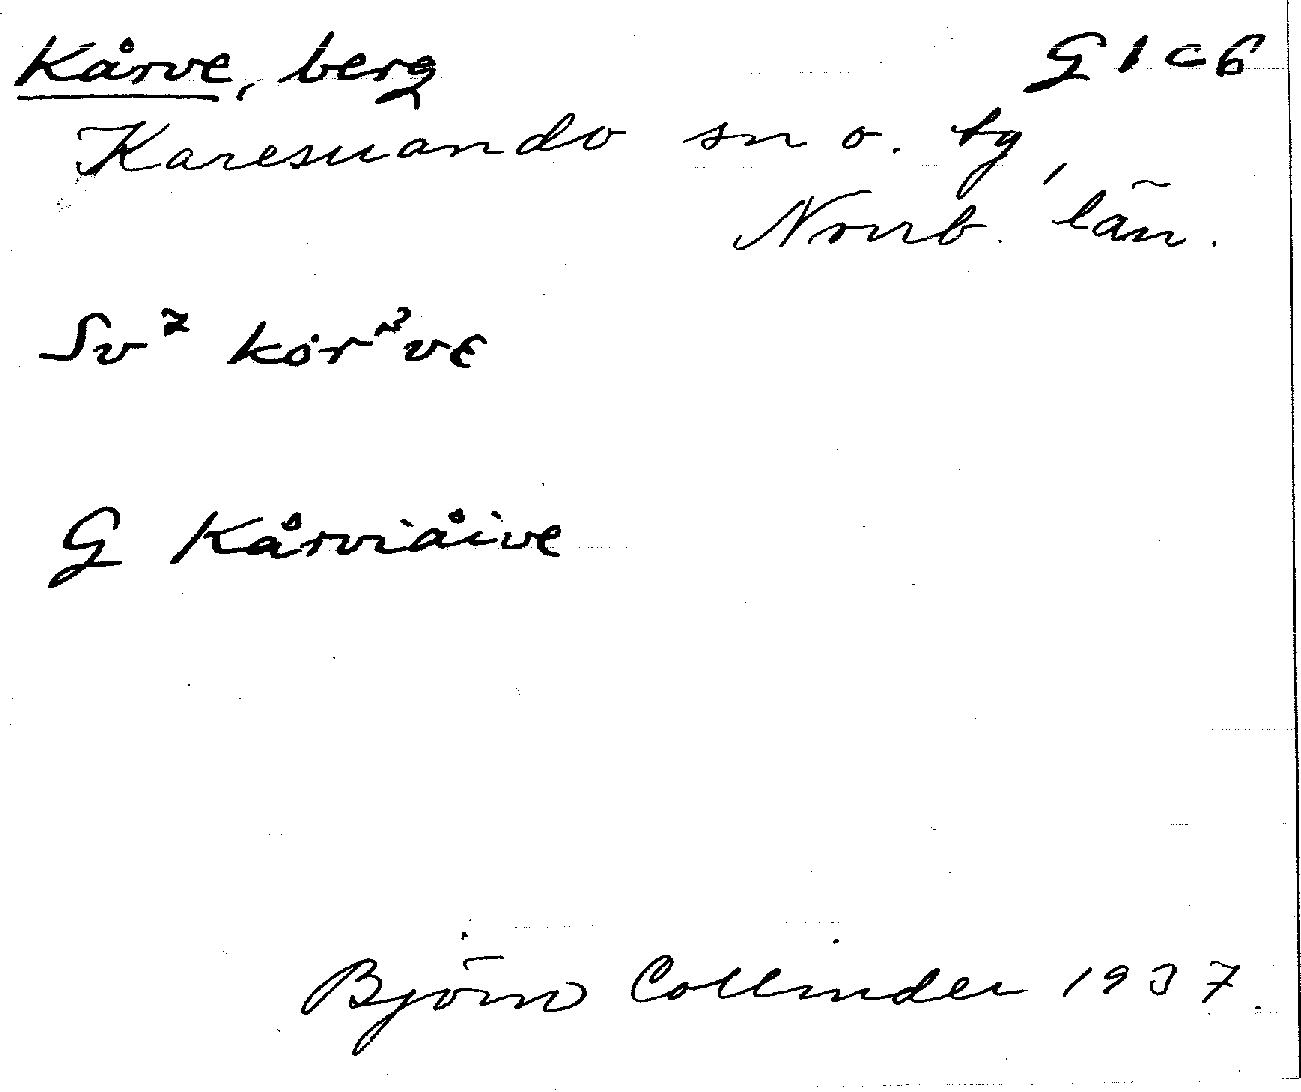 Kårve, berg G 1 c 6
Karesuando sn o. tg,
Norrb. län.
Sv² kȯr²vɛ
G Kårviåive
Björn Collinder 1937.